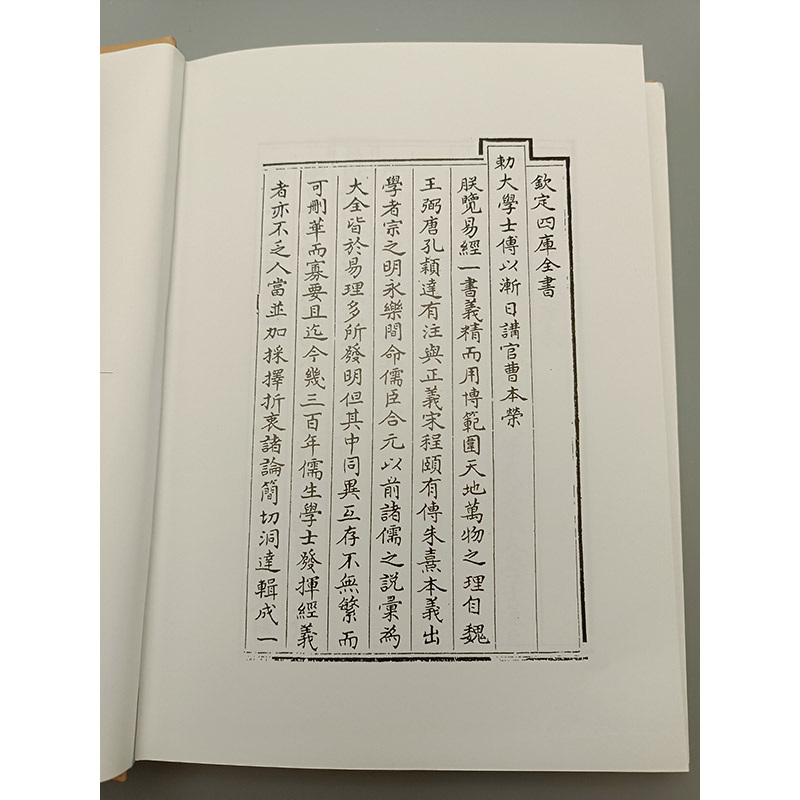 欽定四庫全書
勅大學士傅以漸日講官曹本榮
朕覽易經一書義精而用博範圍天地萬物之理自魏
王弼唐孔穎達有注與正義宋程頤有傳朱熹本義出
學者宗之明永樂間命儒臣合元以前諸儒之說彙為
大全皆於易理多所發明但其中同異互存不無繁而
可刪華而寡要且迄今幾三百年儒生學士發揮經義
者亦不乏人當並加採擇折衷諸論簡切洞達輯成一